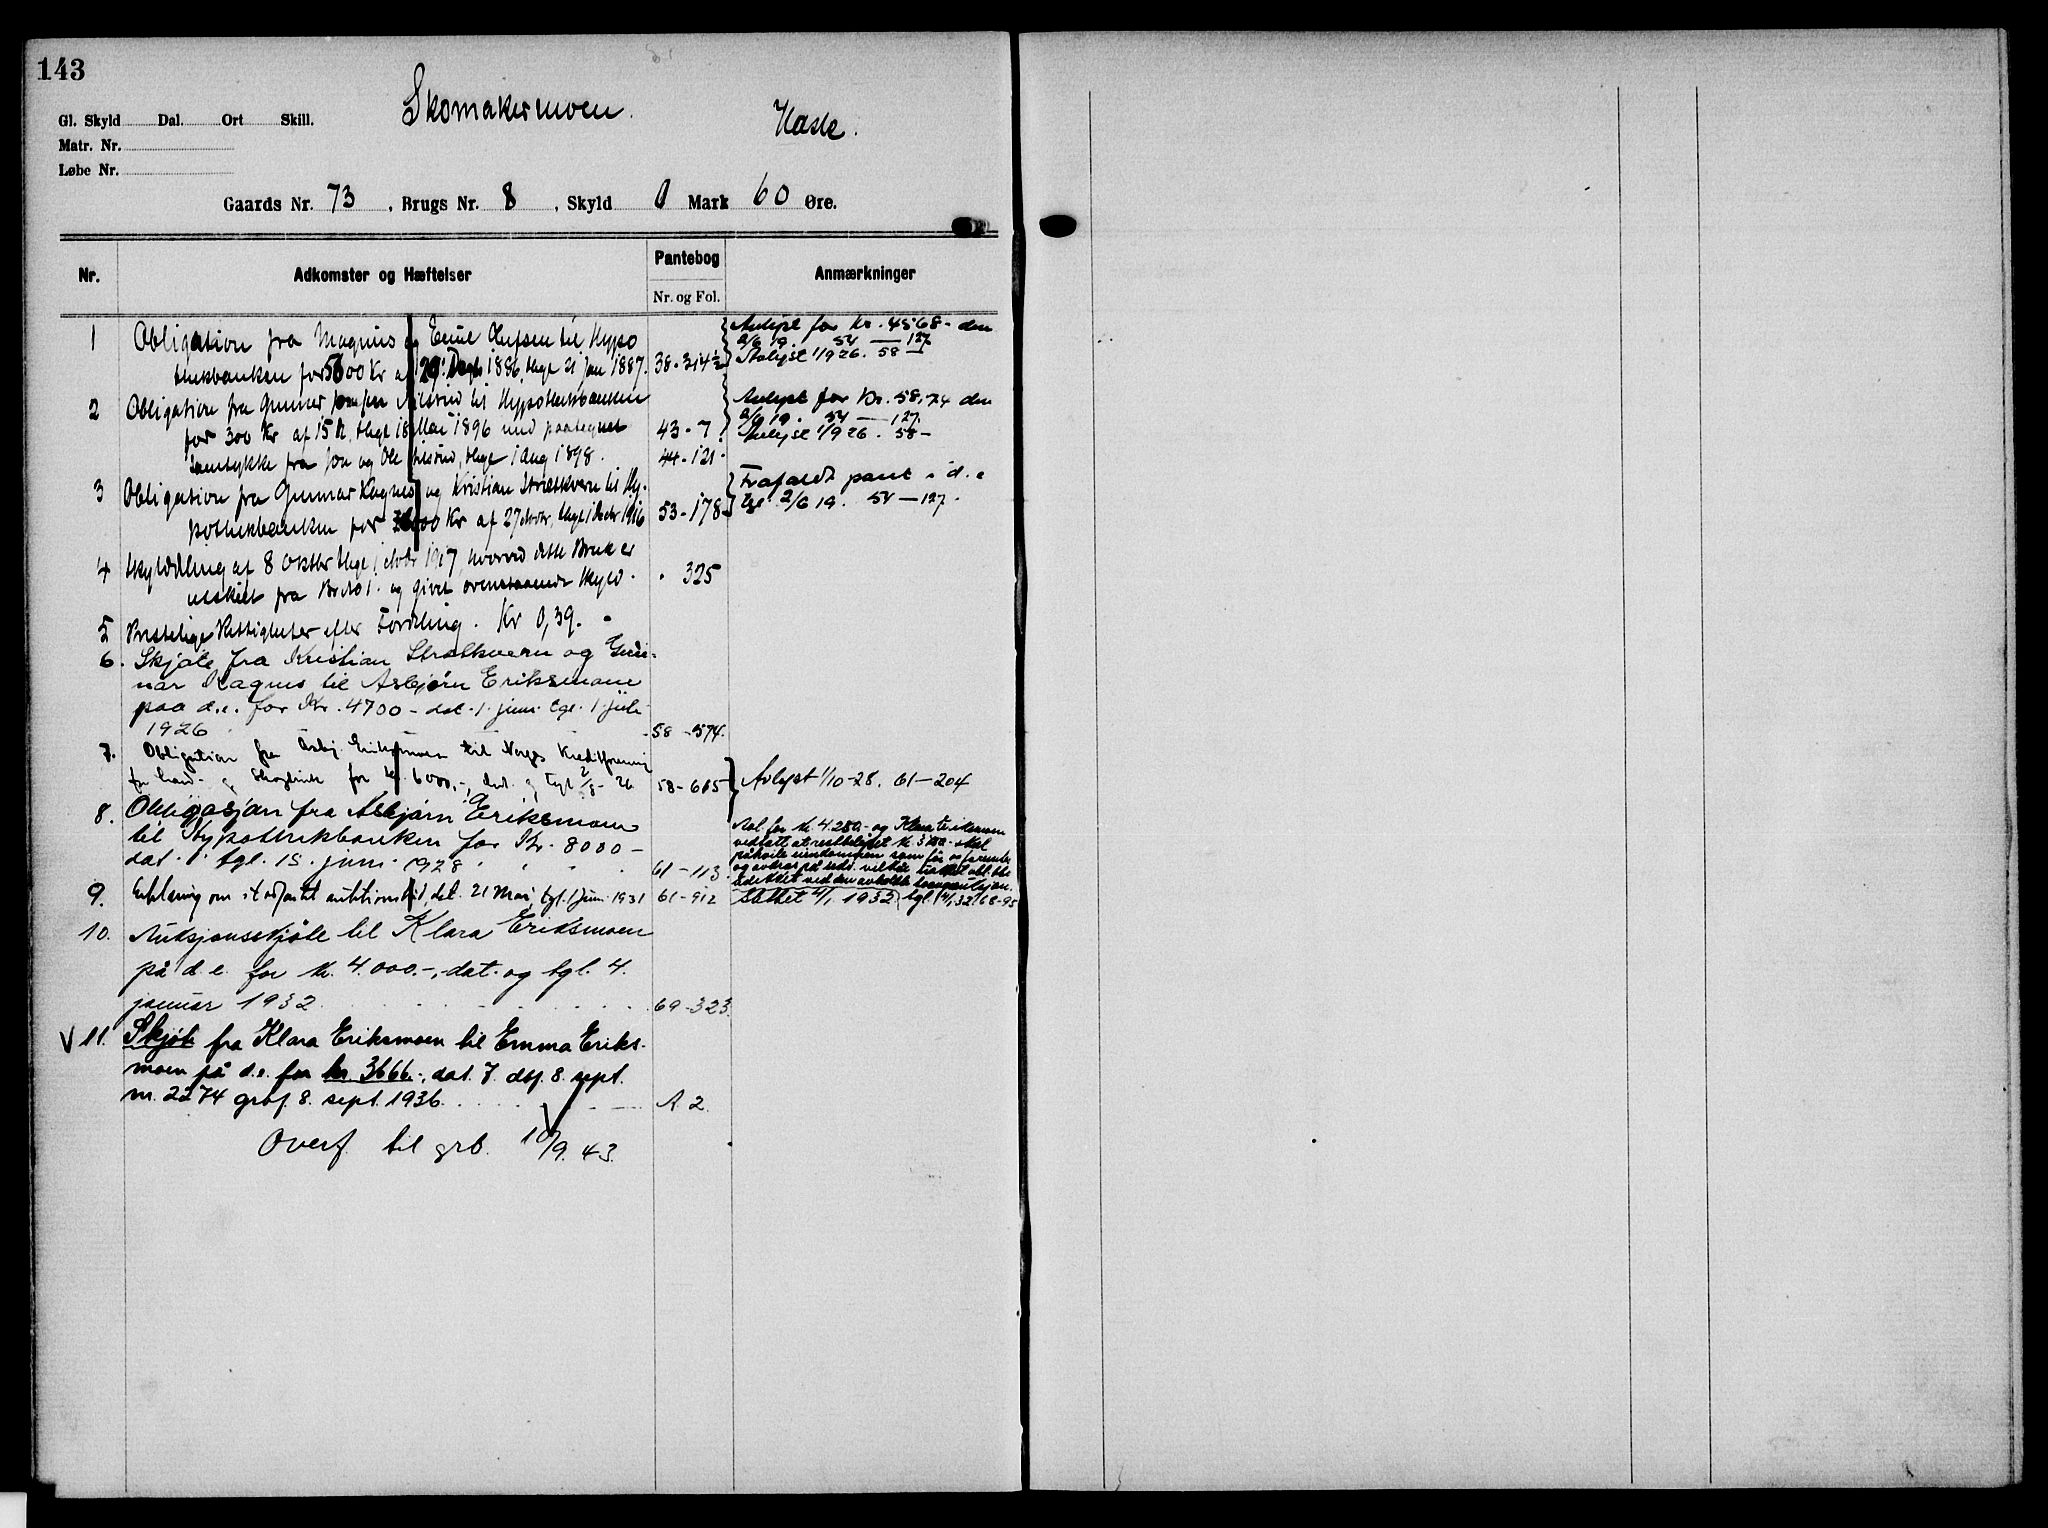 143
Skomakermoen. Hasle.
Gl. Skyld Dal. Ort Skill.
Matr. Nr.
Løbe Nr.
Gaards Nr. 73, Brugs Nr. 8, Skyld 0 Mark 60 Øre.
Nr. Adkomster og Hæftelser Pantebog Anmærkninger
Nr. og Fol.
1 Obligation fra Magnus og Emil Olufsen til Hypo
thekbanken for 5600 Kr af 1886, thlgt 21 Jan 1887. 38-314½
Avlyst for kr. 4568- den
2/6 19. 54 — 127
Avlyst 1/9 26. 58 —
2 Obligation fra Gunnar til Hypothekbanken
for 300 Kr af 15 N, thlgt 18 Mai 1896 med paategnet 43-7
Samtykke fra Jon og Ole thlgt 1 Aug 1898. 44-121
Avlyst for Kr. 58,74 den
2/6 19. 54 — 127.
Avlyst 1/9 26. 58 —
3 Obligation fra Gunnar Kagnes og Kristian Strætkvern til Hy-
pothekbanken for Kr af 27 Novbr, thlgt 1 Decbr 1916 53-178
Frafaldt pant i d. e
tgl 2/6 19. 54 — 127.
4 Skylddeling af 8 Oktbr thlgt 1 Novbr 1917, hvorved dette Bruk er
utskilt fra Br No 1. og givet ovenstaaende Skyld. " 325
5 Prestelige Rettigheter efter Fordeling. Kr 0,39.
6. Skjøte fra Kristian Strætkvern og Gun-
nar Kagnes til Asbjørn Eriksmoen
paa d.e. for Kr. 4700- dat. 1. juni tgl. 1 juli
1926 58-574.
7. Obligation fra Asbj. Eriksmoen til Norges Kreditforening
for Land- og Skogbruk for kr. 6000,-, dat. og tgl 2/8-26 58-615
Avlyst 1/10-28. 61-204
8. Obligasjon fra Asbjørn Eriksmoen
til Hypothekbanken for Kr. 8000-
dat. 1. tgl. 15. juni 1928 61-113
Avl for kr. 4.280,- og Klara Eriksmoen
vedtatt at restbeløpet kr. skal
påhvile eiendommen som før og
og avdras på
ved den avholdte tvangsauksjon.
9. Erklæring om dat. 21 Mai, tgl. 1 Juni 1931 61-912
Slettet 4/1 1932, tgl. 68-95
10. Auksjonsskjøte til Klara Eriksmoen
på d.e. for kr. 4.000.-, dat. og tgl. 4.
januar 1932 69-323.
V 11. Skjøte fra Klara Eriksmoen til Emma Eriks-
moen på d.e. for kr. 3666.-, dat. 7. dbf. 8. sept.
nr. 2274 grbf. 8. sept. 1936. A 2.
Overf. til grb. 10/9. 43.